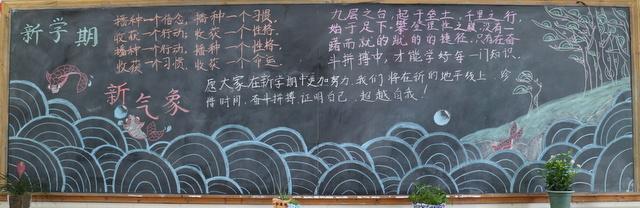 新学期
播种一个信念，播种一个习惯，
收获一个行动；收获一个性格，
播种一个行动，播种一个性格，
收获一个习惯，收获一个命运
新气象
九层之台，起于垒土，千里之行，
始于足下，攀登
就的 的捷径，只有在奋
斗拼搏中，才能学好每一门知识。
愿大家在新学期中更加努力，我们将在新的地平线上，珍
惜时间，奋斗拼搏证明自己，超越自我！